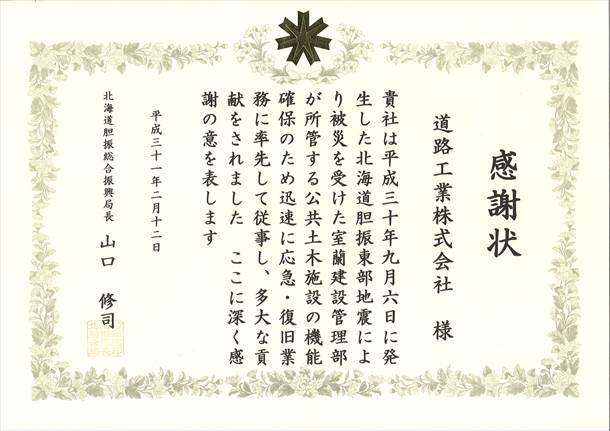 感謝状
道路工業株式会社 様
貴社は平成三十年九月六日に発
生した北海道胆振東部地震によ
り被災を受けた室蘭建設管理部
が所管する公共土木施設の機能
確保のため迅速に応急・復旧業
務に率先して従事し、多大な貢
献をされました ここに深く感
謝の意を表します
平成三十一年二月十二日
北海道胆振総合振興局長 山口 修司